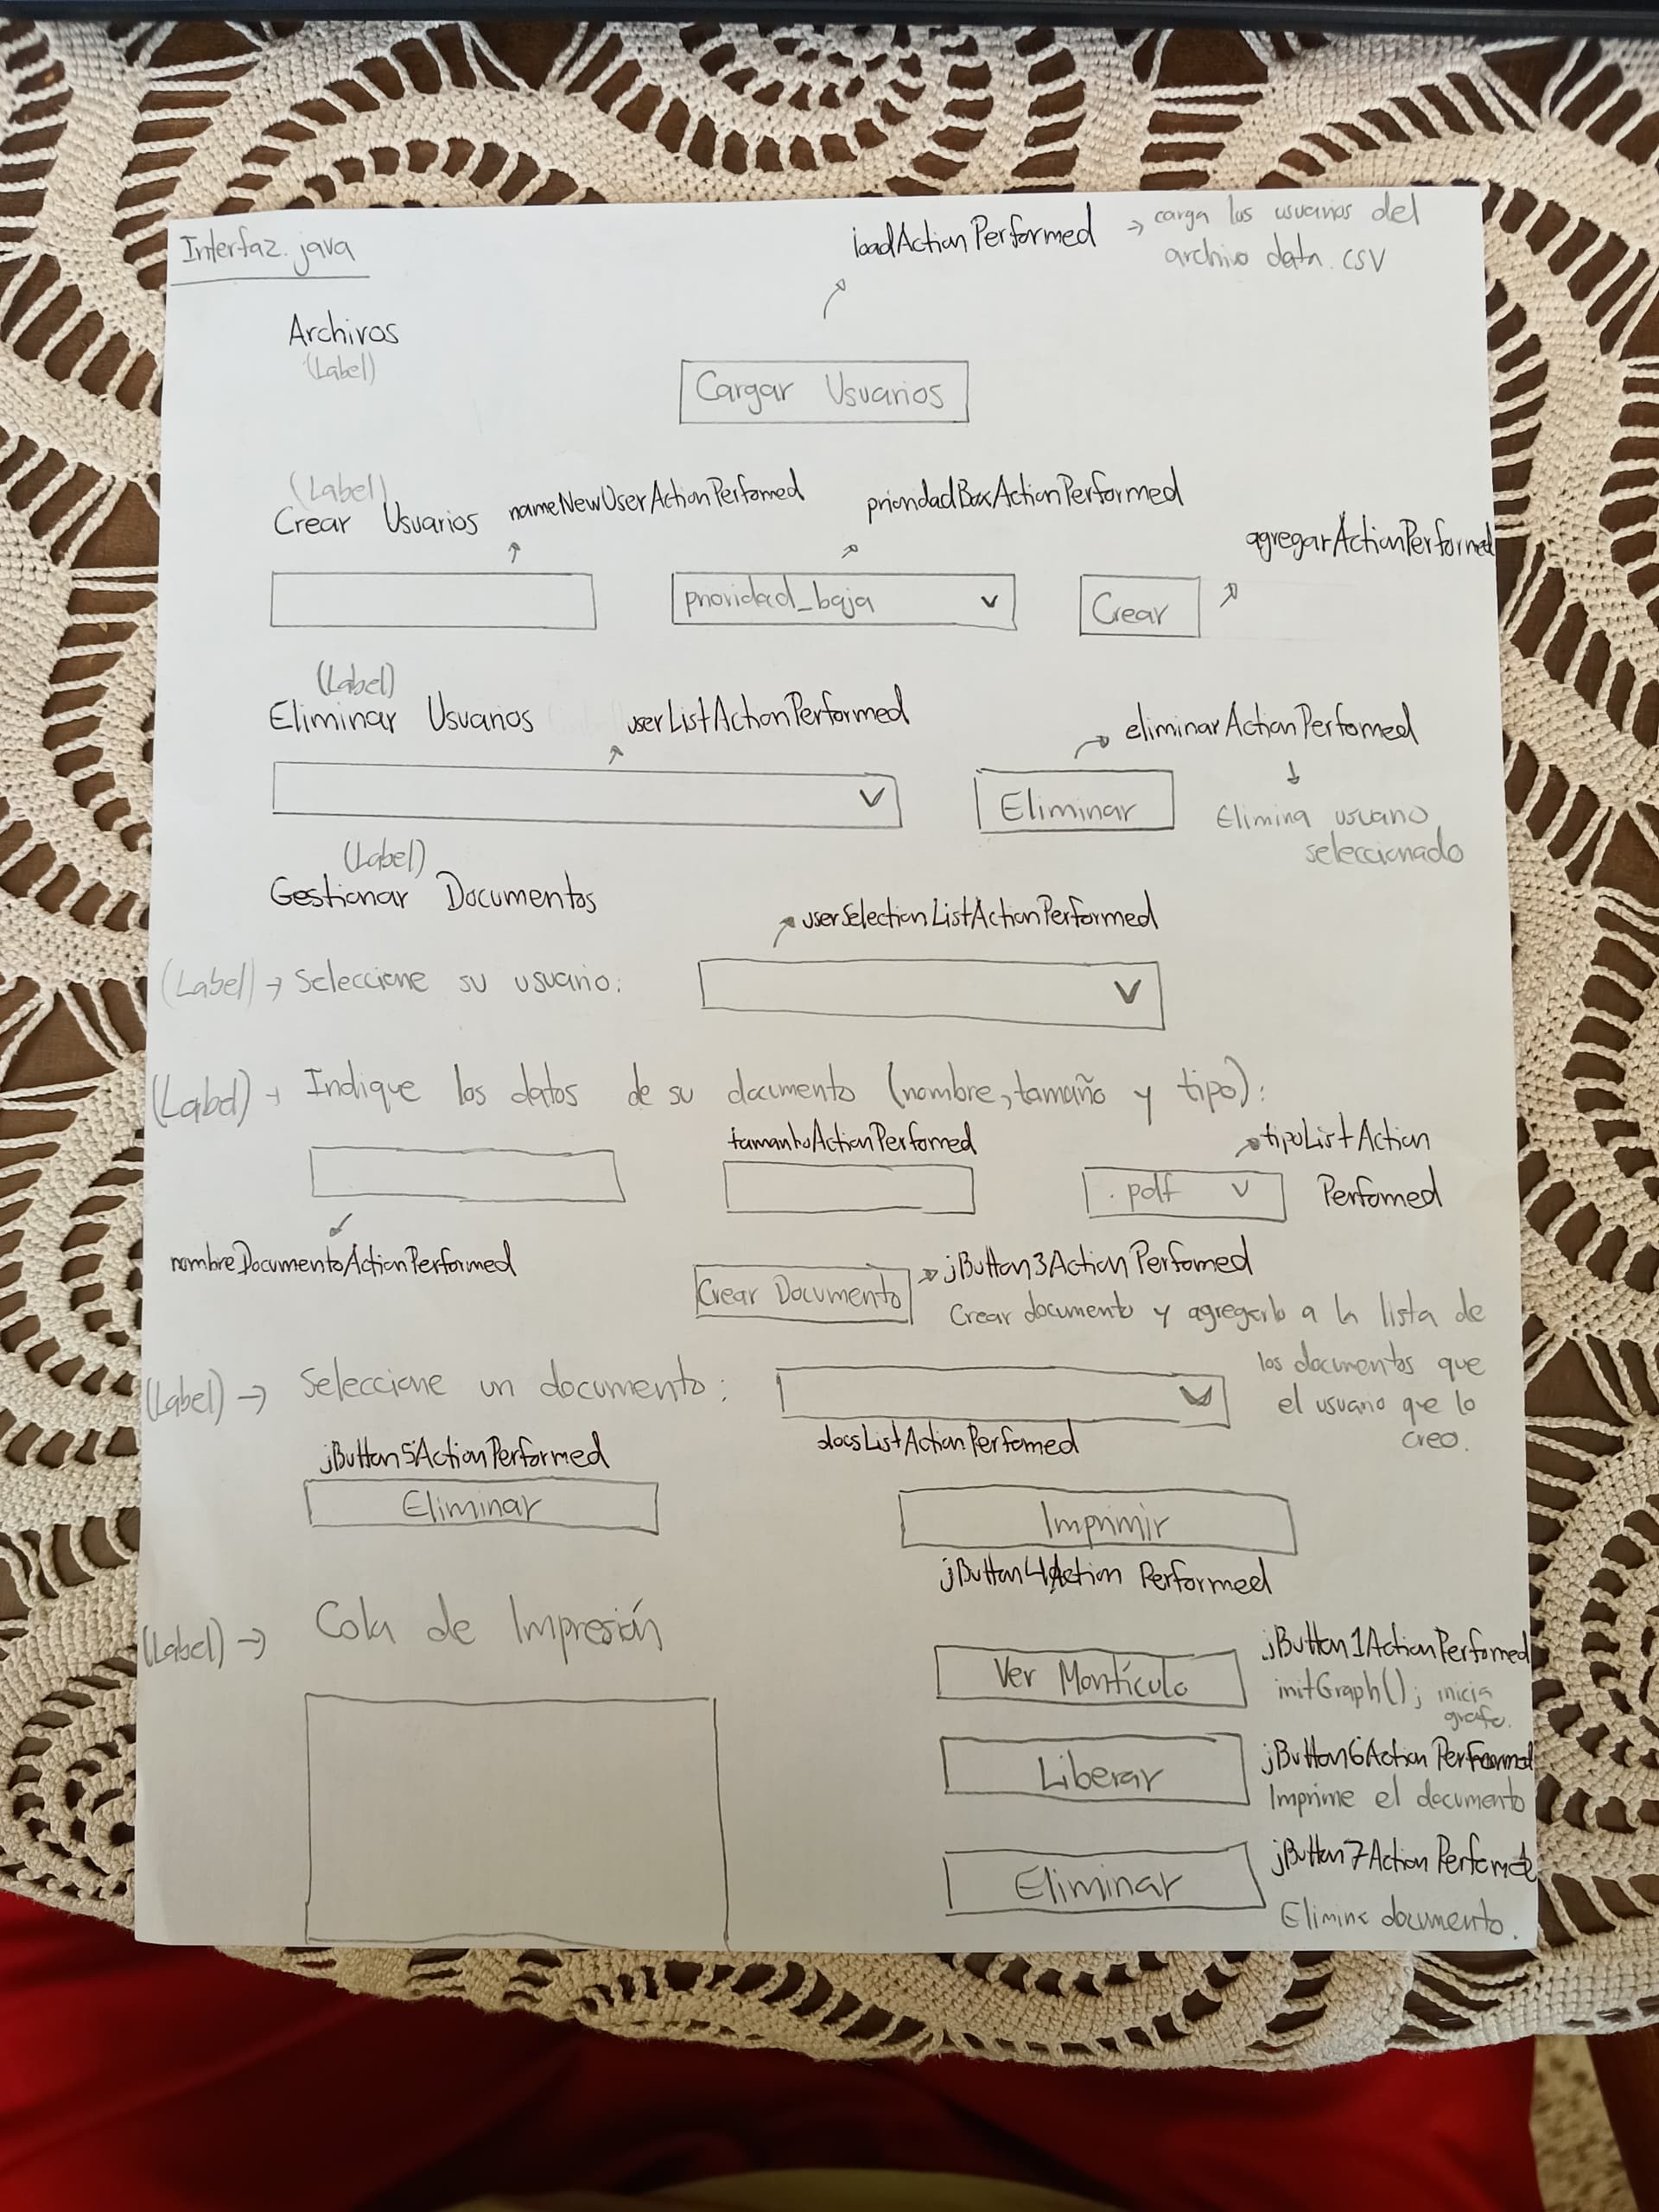 Interfaz.java
loadActionPerformed → carga los usuarios del
archivo data.csv
Archivos
(Label)
Cargar Usuarios
(Label)
Crear Usuarios
nameNewUserActionPerfomed
prioridadBoxActionPerformed
agregarActionPerformed
prioridad_baja
Crear
(Label)
Eliminar Usuarios
userListActionPerformed
eliminarActionPerfomed
Eliminar
Elimina usuario
seleccionado
(Label)
Gestionar Documentos
userSelectionListActionPerformed
(Label) → Seleccione su usuario:
(Label) → Indique los datos de su documento (nombre, tamaño y tipo):
tamanhoActionPerfomed
tipoListAction
Perfomed
.pdf
nombreDocumentoActionPerformed
Crear Documento
jButton3ActionPerfomed
Crear documento y agregarlo a la lista de
los documentos que
el usuario que lo
creo.
(Label) → Seleccione un documento:
docsListActionPerfomed
jButton5ActionPerformed
Eliminar
Imprimir
jButton4Action Performed
(Label) → Cola de Impresión
Ver Montículo
jButton1ActionPerfomed
initGraph(); inicia
grafo.
Liberar
jButton6Action
Imprime el documento
Eliminar
jButton7Action
Elimina documento.